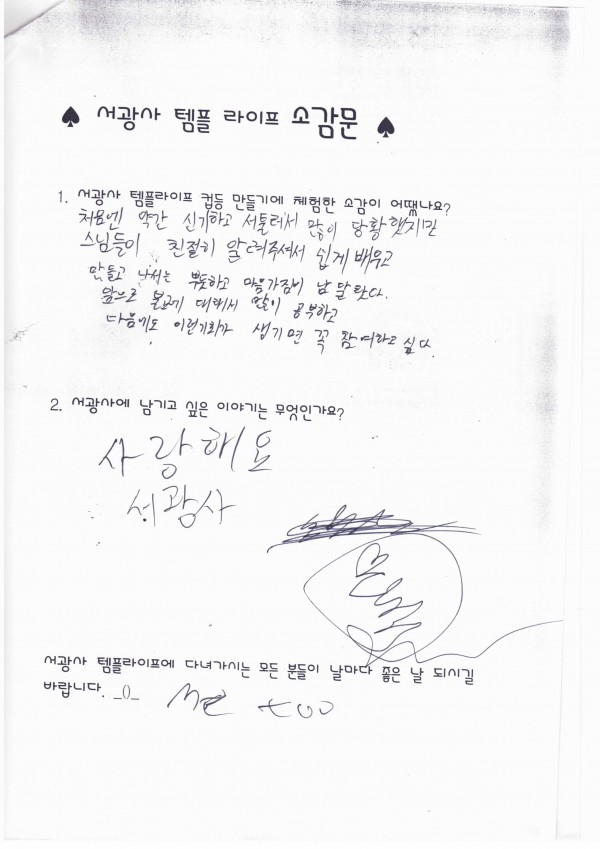 ♠ 서광사 템플 라이프 소감문 ♠
1. 서광사 템플라이프 컵등 만들기에 체험한 소감이 어땠나요?
처음엔 약간 신기하고 서툴러서 많이 당황했지만
스님들이 친절히 알려주셔서 쉽게 배우고
만들고 나서는 뿌듯하고 마음가짐이 남달랐다.
앞으로 불교에 대해서 많이 공부하고
다음에도 이런기회가 생기면 꼭 참여하고 싶다.
2. 서광사에 남기고 싶은 이야기는 무엇인가요?
사랑해요
서광사
서광사 템플라이프에 다녀가시는 모든 분들이 날마다 좋은 날 되시길
바랍니다. _()_ Me too